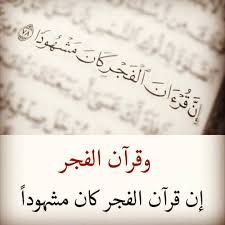 إِنَّ قُرْءَانَ الْفَجْرِ كَانَ مَشْهُودًا ٧٨
وقرآن الفجر
إن قرآن الفجر كان مشهوداً